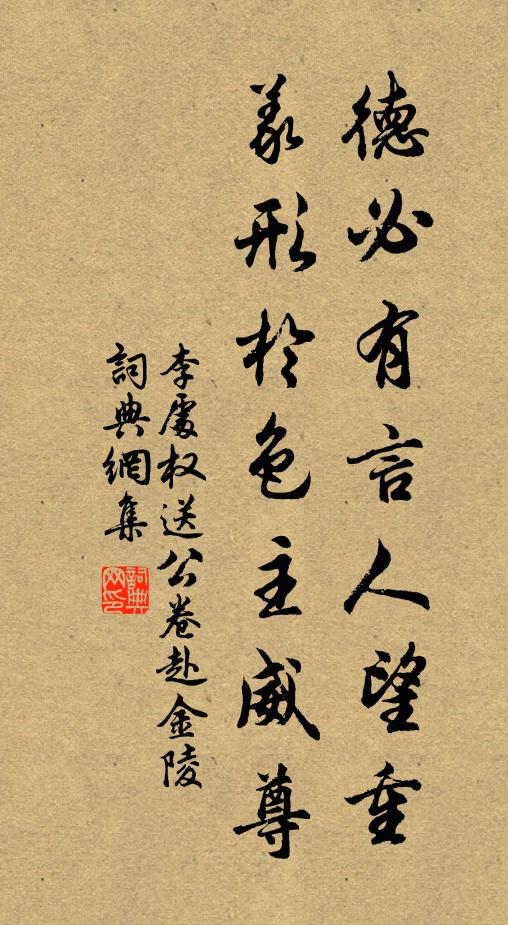 德必有言人望重
義形於色主威尊
李處权送公卷赴金陵
詞典網集
詞典網印